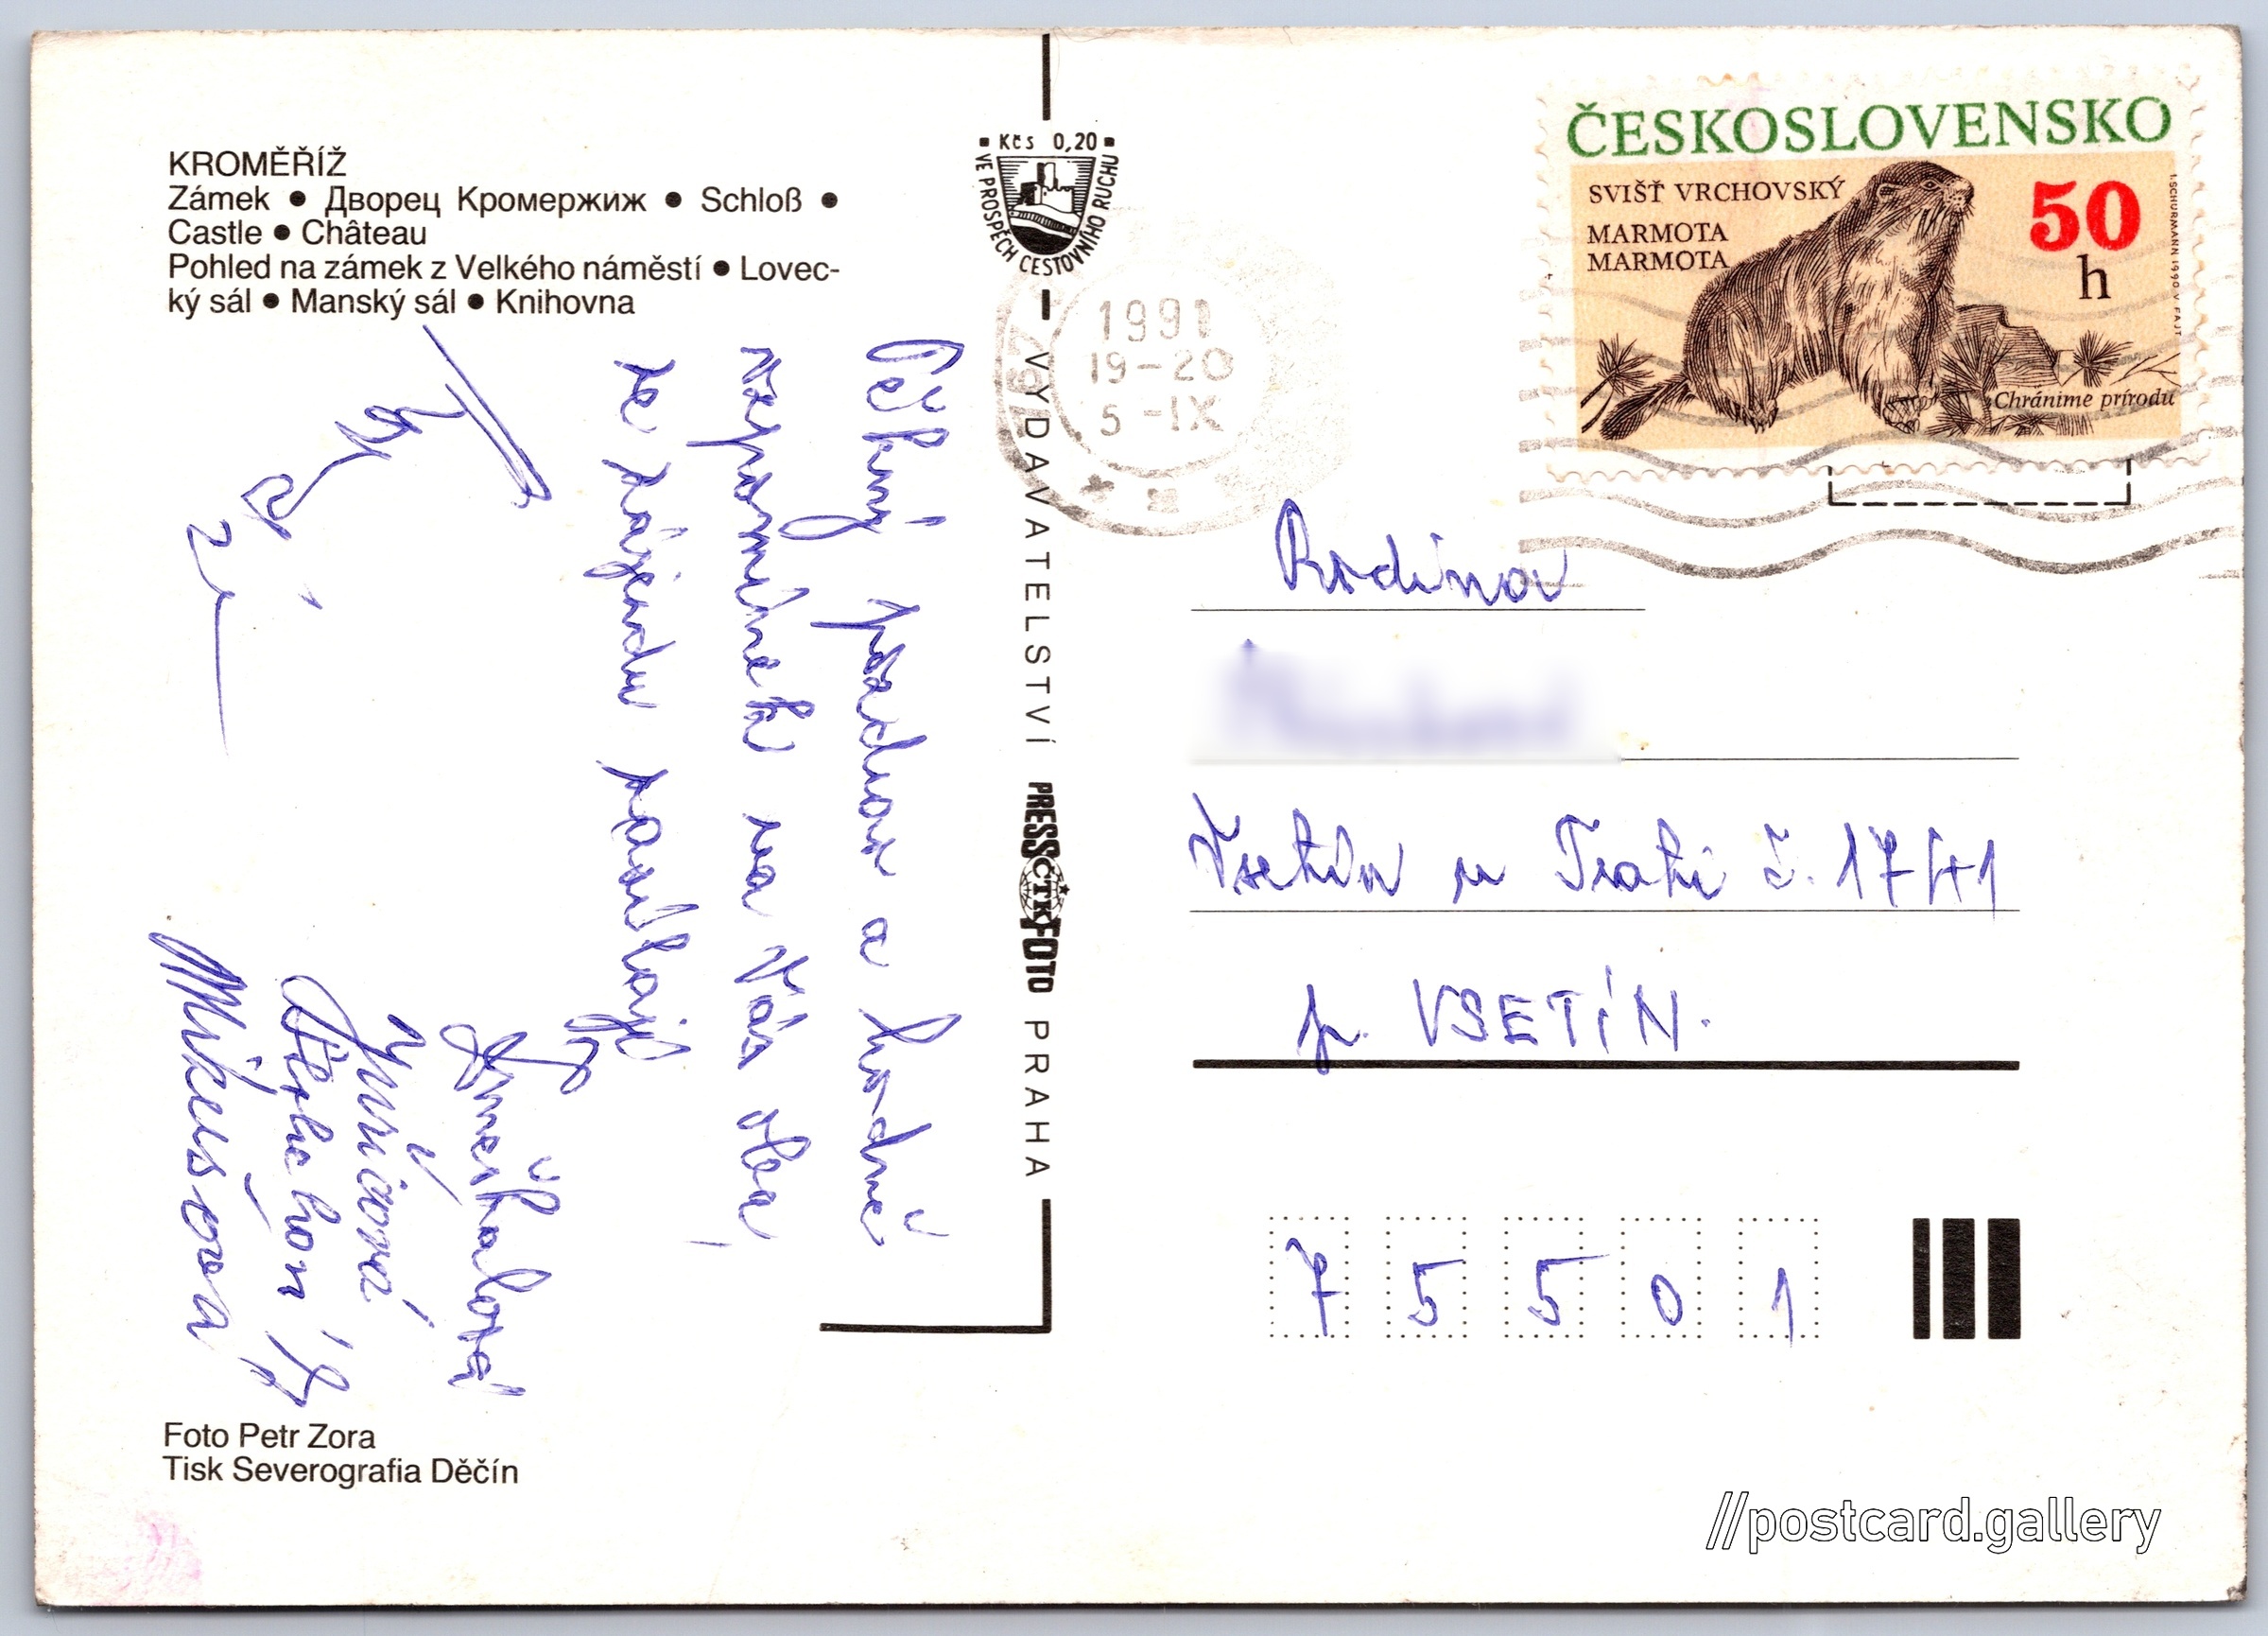 KROMĚŘÍŽ
Zámek ● Дворец Кромержиж ● Schloß ●
Castle ● Château
Pohled na zámek z Velkého náměstí ● Lovec-
ký sál ● Manský sál ● Knihovna
Pěkný pozdrav a hodně
vzpomínek na Vás
ze zájezdu posílají
Mikešová
Foto Petr Zora
Tisk Severografia Děčín
Kčs 0,20
VE PROSPĚCH CESTOVNÍHO RUCHU
VYDAVATELSTVÍ PRESSFOTO PRAHA
ČTK
1991
19-20
5 -IX
ČESKOSLOVENSKO
SVIŠŤ VRCHOVSKÝ
MARMOTA
MARMOTA
50
h
Chránime prírodu
I. SCHURMANN 1990 V. FAJT
Rodina
Vsetín u Trati č. 1741
p. VSETÍN.
7 5 5 0 1
//postcard.gallery